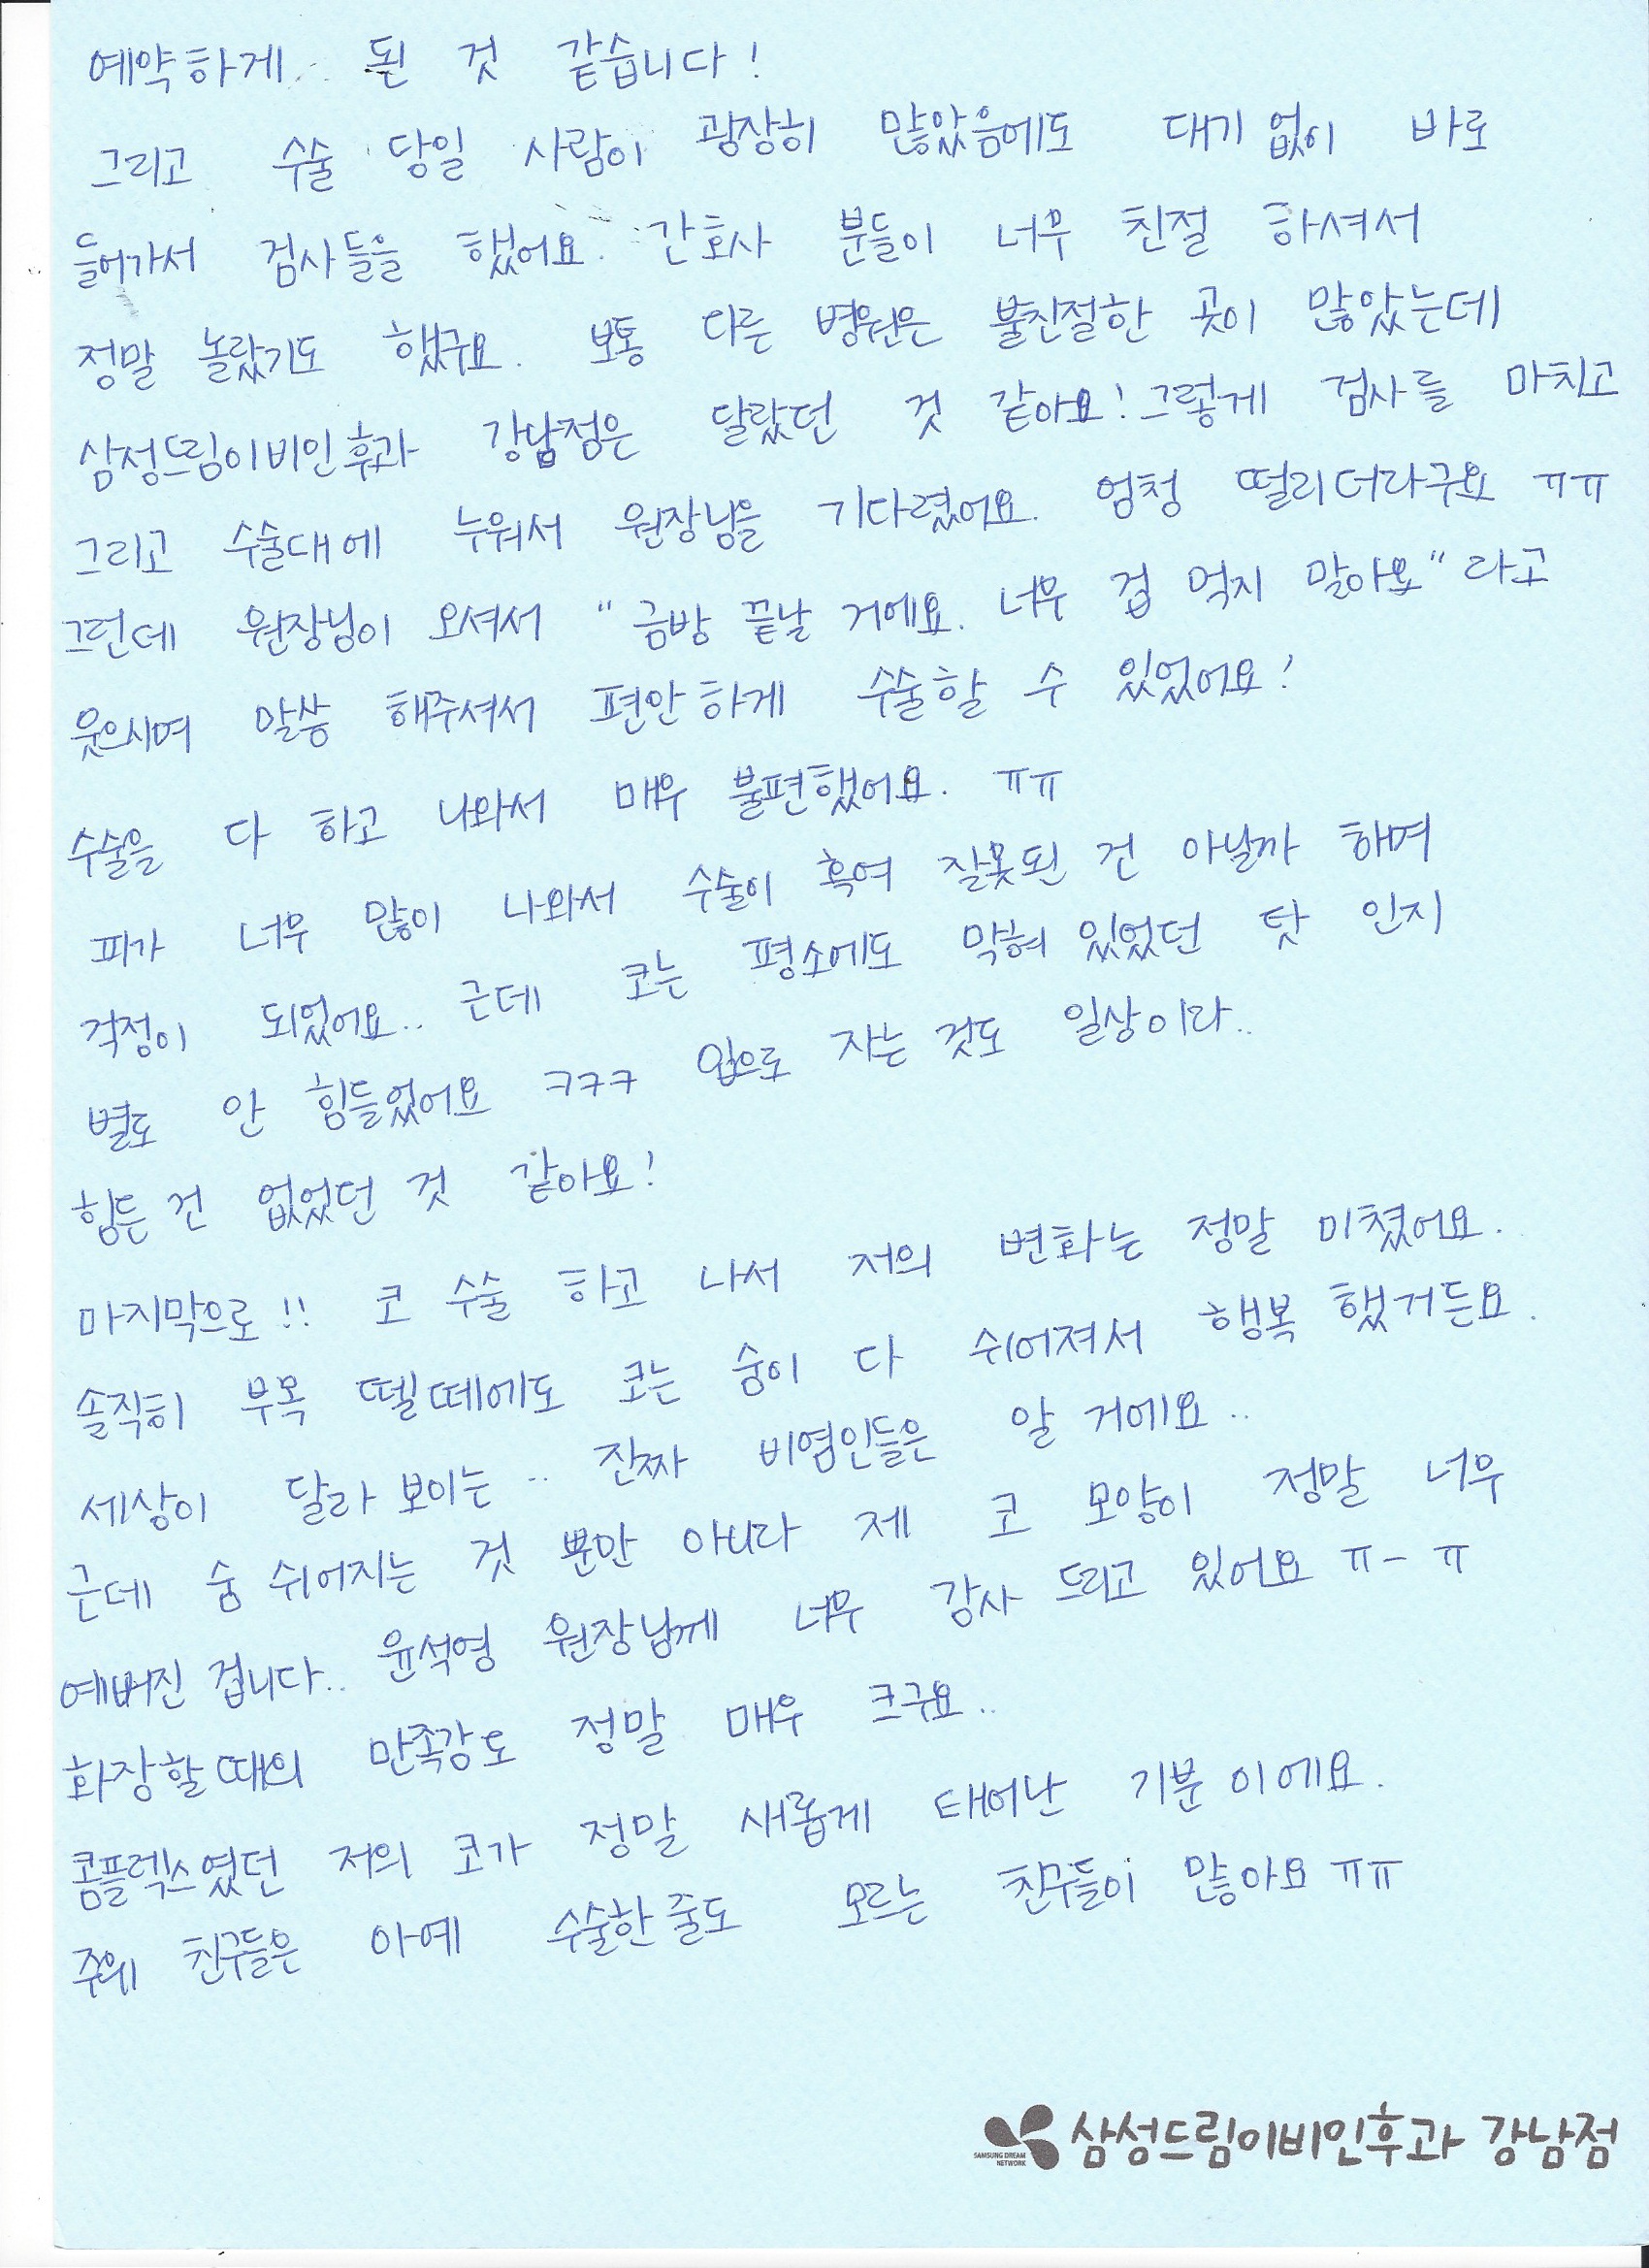 예약하게 된 것 같습니다!
그리고 수술 당일 사람이 굉장히 많았음에도 대기 없이 바로
들어가서 검사들을 했어요. 간호사 분들이 너무 친절 하셔서
정말 놀랐기도 했구요. 보통 다른 병원은 불친절한 곳이 많았는데
삼성드림이비인후과 강남점은 달랐던 것 같아요! 그렇게 검사를 마치고
그리고 수술대에 누워서 원장님을 기다렸어요. 엄청 떨리더라구요 ㅠㅠ
그런데 원장님이 오셔서 "금방 끝날 거에요. 너무 겁 먹지 말아요" 라고
웃으시며 말씀 해주셔서 편안하게 수술할 수 있었어요!
수술을 다 하고 나와서 매우 불편했어요. ㅠㅠ
피가 너무 많이 나와서 수술이 혹여 잘못된 건 아닐까 하며
걱정이 되었어요.. 근데 코는 평소에도 막혀 있었던 탓 인지
별도 안 힘들었어요 ㅋㅋㅋ 입으로 자는 것도 일상이라..
힘든 건 없었던 것 같아요!
마지막으로!! 코 수술 하고 나서 저의 변화는 정말 미쳤어요.
솔직히 부목 뗄떼에도 코는 숨이 다 쉬어져서 행복 했거든요.
세상이 달라 보이는.. 진짜 비염인들은 알 거에요..
근데 숨 쉬어지는 것 뿐만 아니라 제 코 모양이 정말 너무
예뻐진 겁니다.. 윤석영 원장님께 너무 감사 드리고 있어요 ㅠ-ㅠ
화장할때의 만족감도 정말 매우 크구요..
콤플렉스였던 저의 코가 정말 새롭게 태어난 기분 이에요.
주위 친구들은 아예 수술한 줄도 모르는 친구들이 많아요 ㅠㅠ
SAMSUNG DREAM
NETWORK
삼성드림이비인후과 강남점